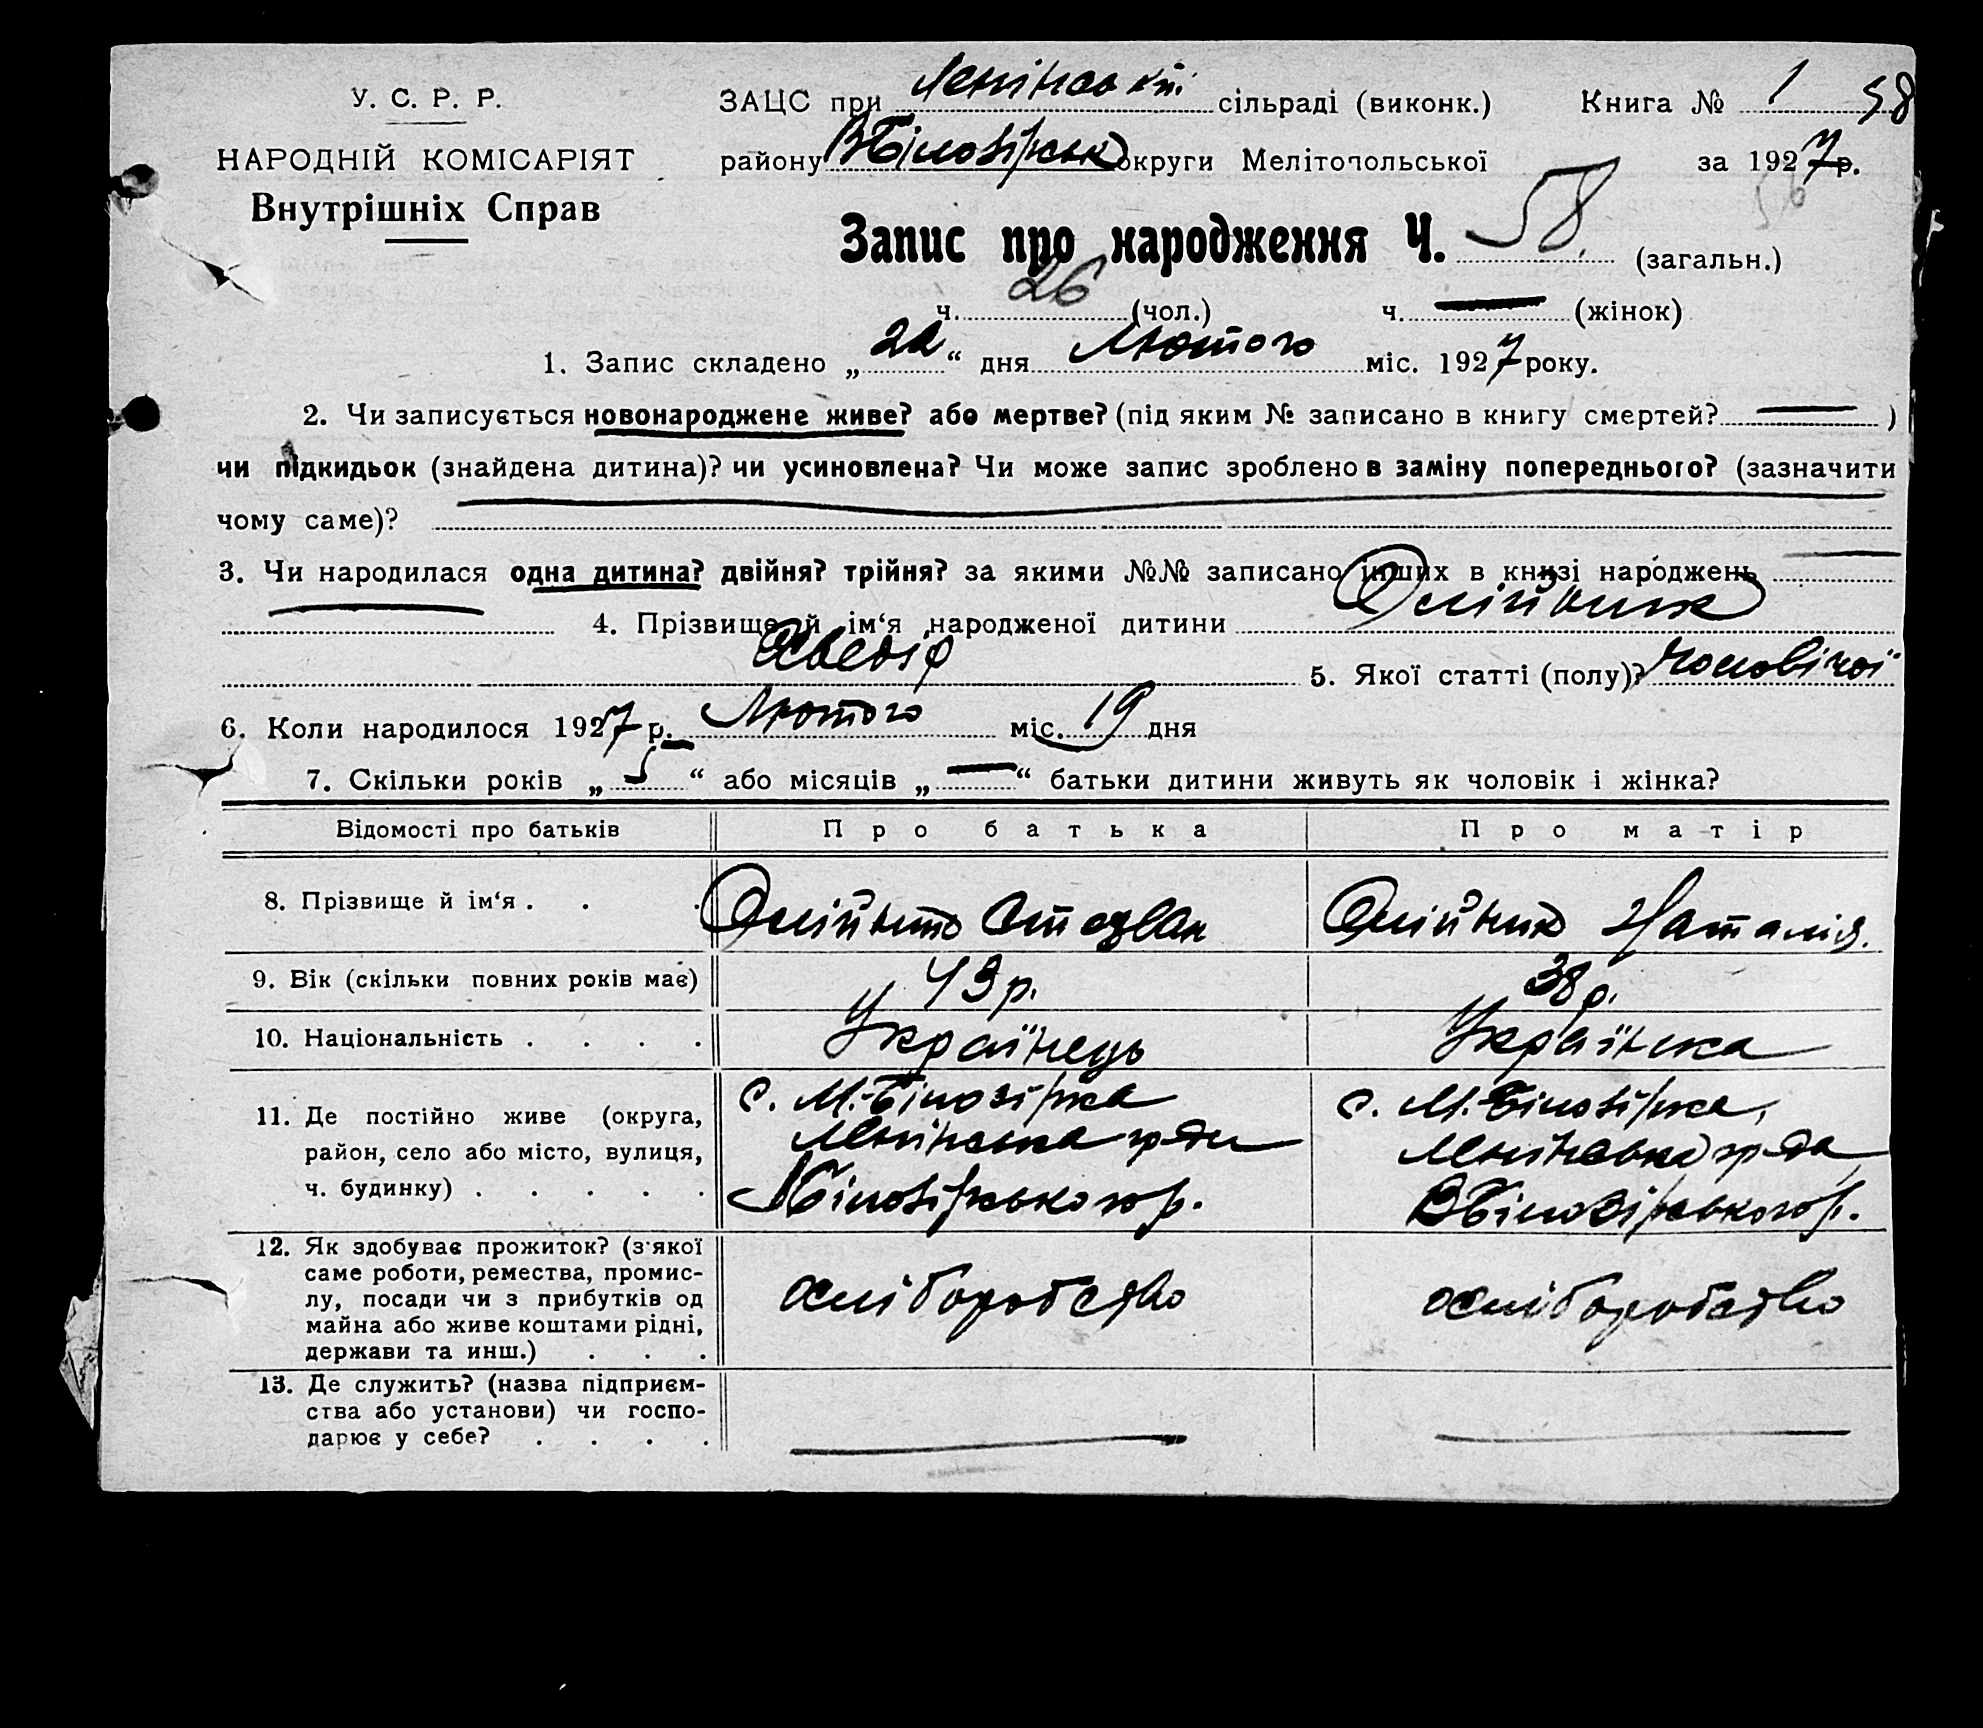 У. С. Р. Р.
НАРОДНІЙ КОМІСАРІЯТ
Внутрішніх Справ
ЗАЦС при Ленінській сільраді (виконк.) Книга № 1 58
району ВБілозірськ округи Мелітопольської за 1927 р.
56
Запис про народження Ч. 58. (загальн.)
ч. 26 (чол.) ч. — (жінок)
1. Запис складено „22“ дня Лютого міс. 1927 року.
2. Чи записується новонароджене живе? або мертве? (під яким № записано в книгу смертей? — )
чи підкидьок (знайдена дитина)? чи усиновлена? Чи може запис зроблено в заміну попереднього? (зазначити
чому саме)?
3. Чи народилася одна дитина? двійня? трійня? за якими №№ записано інших в книзі народжень —
4. Прізвище й ім‘я народженої дитини Олійник
Хведір 5. Якої статті (полу)? чоловічої
6. Коли народилося 1927 р. Лютого міс. 19 дня
7. Скільки років „5“ або місяців „—“ батьки дитини живуть як чоловік і жінка?
Відомості про батьків Про батька Про матір
8. Прізвище й ім‘я . . . Олійник Степан Олійник Наталія.
9. Вік (скільки повних років має) 43 р. 38 р.
10. Національність . . . . Українець Українка
11. Де постійно живе (округа,
район, село або місто, вулиця,
ч. будинку) . . . . .
с. М.-Білозірка
Ленінська
ВБілозірського р.
с. М.-Білозірка,
Ленінська
ВБілозірського р.
12. Як здобуває прожиток? (з якої
саме роботи, ремества, промис-
лу, посади чи з прибутків од
майна або живе коштами рідні,
держави та инш.) . . .
хліборобство
хліборобство
13. Де служить? (назва підприєм-
ства або установи) чи госпо-
дарює у себе? . . . .